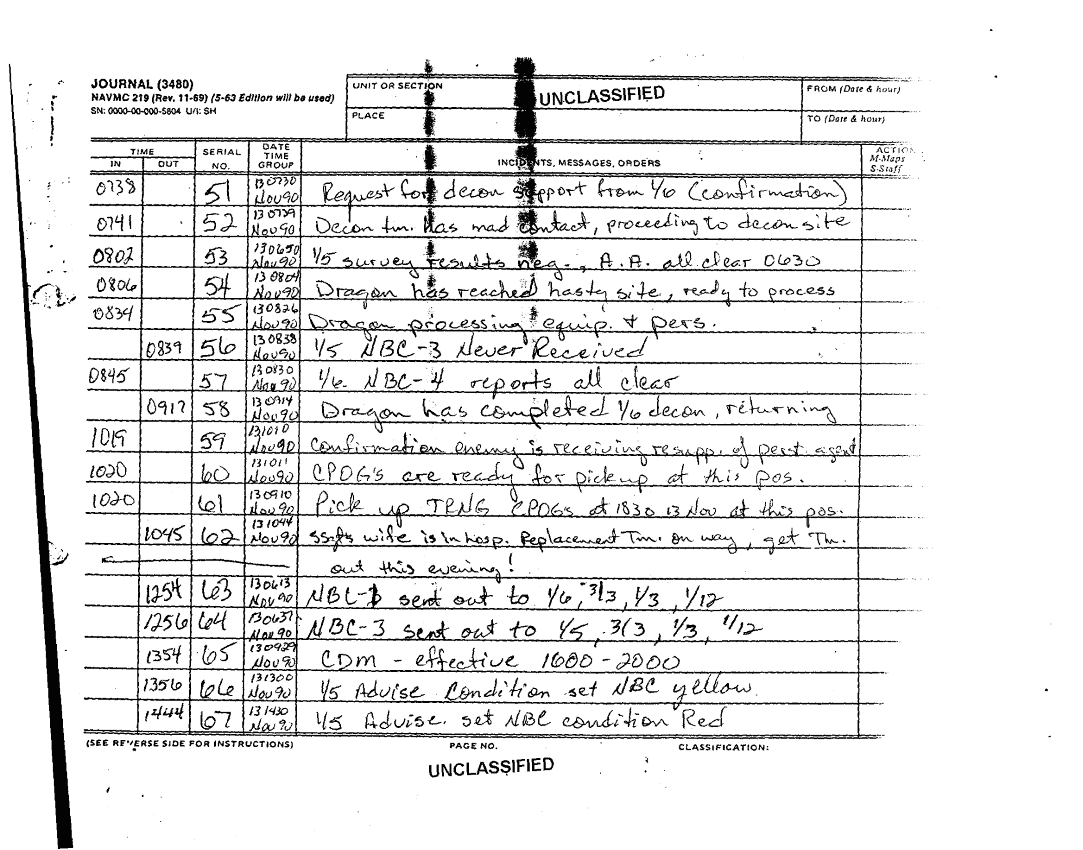 JOURNAL (3480)
NAVMC 219 (Rev. 11-69) (5-63 Edition will be used)
SN: 0000-00-000-5804 U/I: SH
UNIT OR SECTION
UNCLASSIFIED
FROM (Date & hour)
PLACE
TO (Date & hour)
TIME
IN OUT
SERIAL NO.
DATE TIME GROUP
INCIDENTS, MESSAGES, ORDERS
ACTION
M-Maps
S-Staff
0738 51 130730 Nov 90 Request for decon support from 1/6 (confirmation)
0741 52 130739 Nov 90 Decon tm. has mad contact, proceeding to decon site
0802 53 130650 Nov 90 1/5 survey results neg., A.A. all clear 0630
0806 54 130804 Nov 90 Dragon has reached hasty site, ready to process
0834 55 130826 Nov 90 Dragon processing equip. & pers.
0839 56 130838 Nov 90 1/5 NBC-3 Never Received
0845 57 130830 Nov 90 1/6 NBC-4 reports all clear
0917 58 130914 Nov 90 Dragon has completed 1/6 decon, returning
1019 59 131010 Nov 90 confirmation enemy is receiving resupp. of perst agent
1020 60 131011 Nov 90 CPOG's are ready for pickup at this pos.
1020 61 130910 Nov 90 Pick up TRNG CPOGs at 1830 13 Nov at this pos.
1045 62 131044 Nov 90 wife is in hosp. Replacement Tm. on way, get Tm.
out this evening!
1254 63 130613 Nov 90 NBC-1 sent out to 1/6, 3/3, 1/3, 1/12
1256 64 130637 Nov 90 NBC-3 sent out to 1/5, 3/3, 1/3, 1/12
1354 65 130929 Nov 90 CDM - effective 1600-2000
1356 66 131300 Nov 90 1/5 Advise Condition set NBC yellow
1444 67 131430 Nov 90 1/5 Advise. set NBC condition Red
(SEE REVERSE SIDE FOR INSTRUCTIONS)
PAGE NO.
CLASSIFICATION:
UNCLASSIFIED